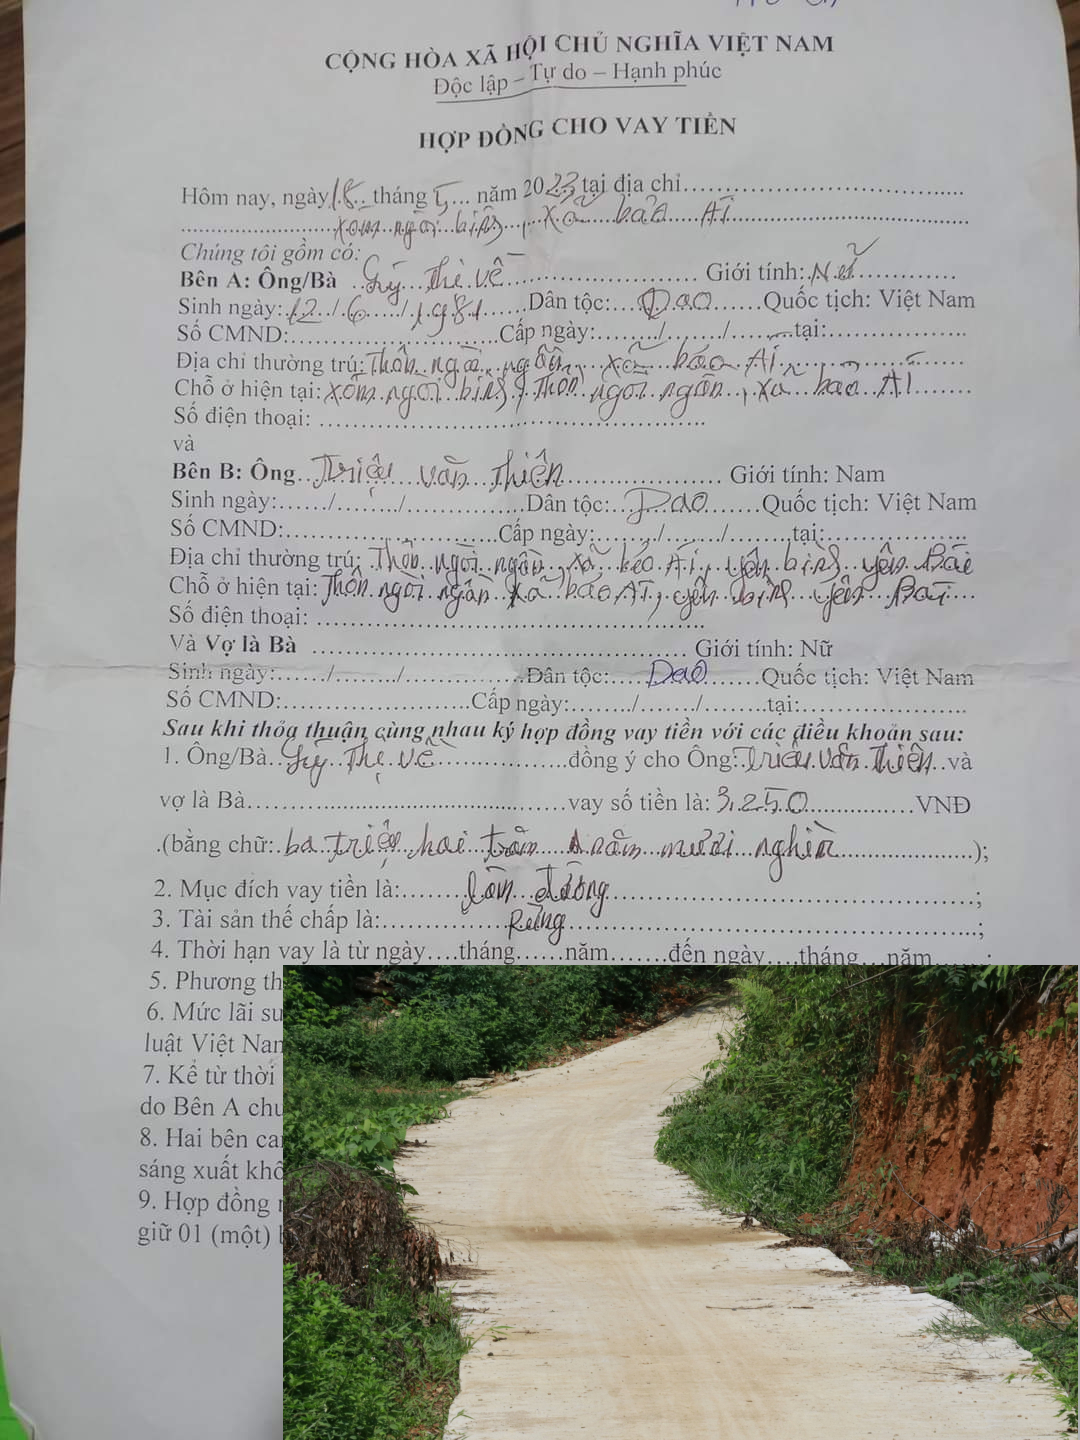 CỘNG HÒA XÃ HỘI CHỦ NGHĨA VIỆT NAM
Độc lập – Tự do – Hạnh phúc
HỢP ĐỒNG CHO VAY TIỀN
Hôm nay, ngày 18 tháng 5 năm 2023 tại địa chỉ
xóm ngòi bình, xã bảo Ái
Chúng tôi gồm có:
Bên A: Ông/Bà Lý Thị Về Giới tính: Nữ
Sinh ngày: 12/6/1981 Dân tộc: Dao Quốc tịch: Việt Nam
Số CMND: Cấp ngày: / / tại:
Địa chỉ thường trú: Thôn ngòi ngần, xã bảo Ái
Chỗ ở hiện tại: xóm ngòi bình, Thôn ngòi ngần, xã bảo Ái
Số điện thoại:
và
Bên B: Ông Triệu văn Thiên Giới tính: Nam
Sinh ngày: / / Dân tộc: Dao Quốc tịch: Việt Nam
Số CMND: Cấp ngày: / / tại:
Địa chỉ thường trú: Thôn ngòi ngần, xã bảo Ái, yên bình yên Bái
Chỗ ở hiện tại: Thôn ngòi ngần xã bảo Ái, yên bình yên Bái
Số điện thoại:
Và Vợ là Bà Giới tính: Nữ
Sinh ngày: / / Dân tộc: Dao Quốc tịch: Việt Nam
Số CMND: Cấp ngày: / / tại:
Sau khi thỏa thuận cùng nhau ký hợp đồng vay tiền với các điều khoản sau:
1. Ông/Bà Lý Thị Về đồng ý cho Ông: Triệu văn Thiên và
vợ là Bà vay số tiền là: 3.250 VNĐ
(bằng chữ: ba triệu hai trăm năm mươi nghìn);
2. Mục đích vay tiền là: làm đường;
3. Tài sản thế chấp là: Rừng;
4. Thời hạn vay là từ ngày tháng năm đến ngày tháng năm ;
5. Phương th
6. Mức lãi su
luật Việt Nan
7. Kể từ thời
do Bên A chu
8. Hai bên ca
sáng xuất khô
9. Hợp đồng
giữ 01 (một)